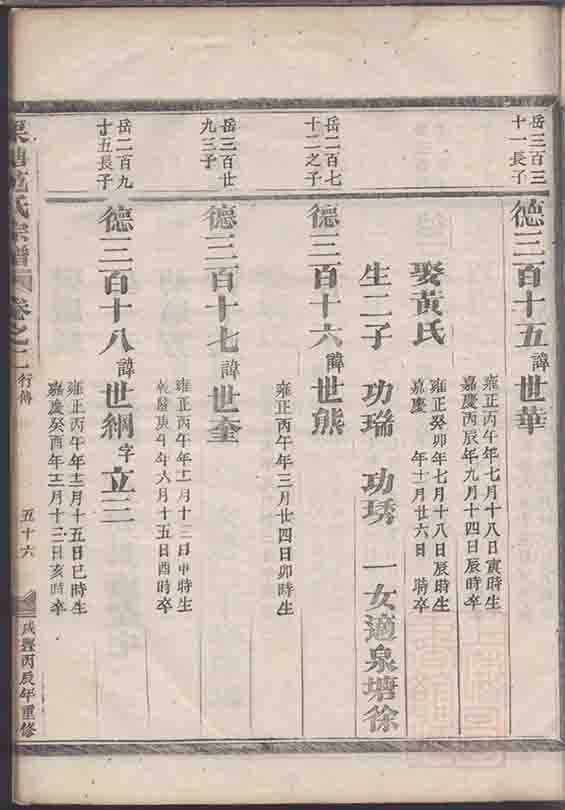 岳三百三
十一長子
德三百十五諱世華
雍正丙午年七月十八日寅時生
嘉慶丙辰年九月十四日辰時卒
娶黃氏
雍正癸卯年七月十八日辰時生
嘉慶 年十一月廿六日 時卒
生二子 功瑞 功琇 一女適泉塘徐
岳二百七
十二之子
德三百十六諱世熊
雍正丙午年三月廿四日卯時生
岳三百廿
九三子
德三百十七諱世奎
雍正丙午年十一月十三日申時生
乾隆庚午年六月十五日酉時卒
岳二百九
十五長子
德三百十八諱世綱字立三
雍正丙午年十二月十五日巳時生
嘉慶癸酉年十二月十三日亥時卒
氏宗譜 卷之二 行傳 五十六 咸豐丙辰年重修